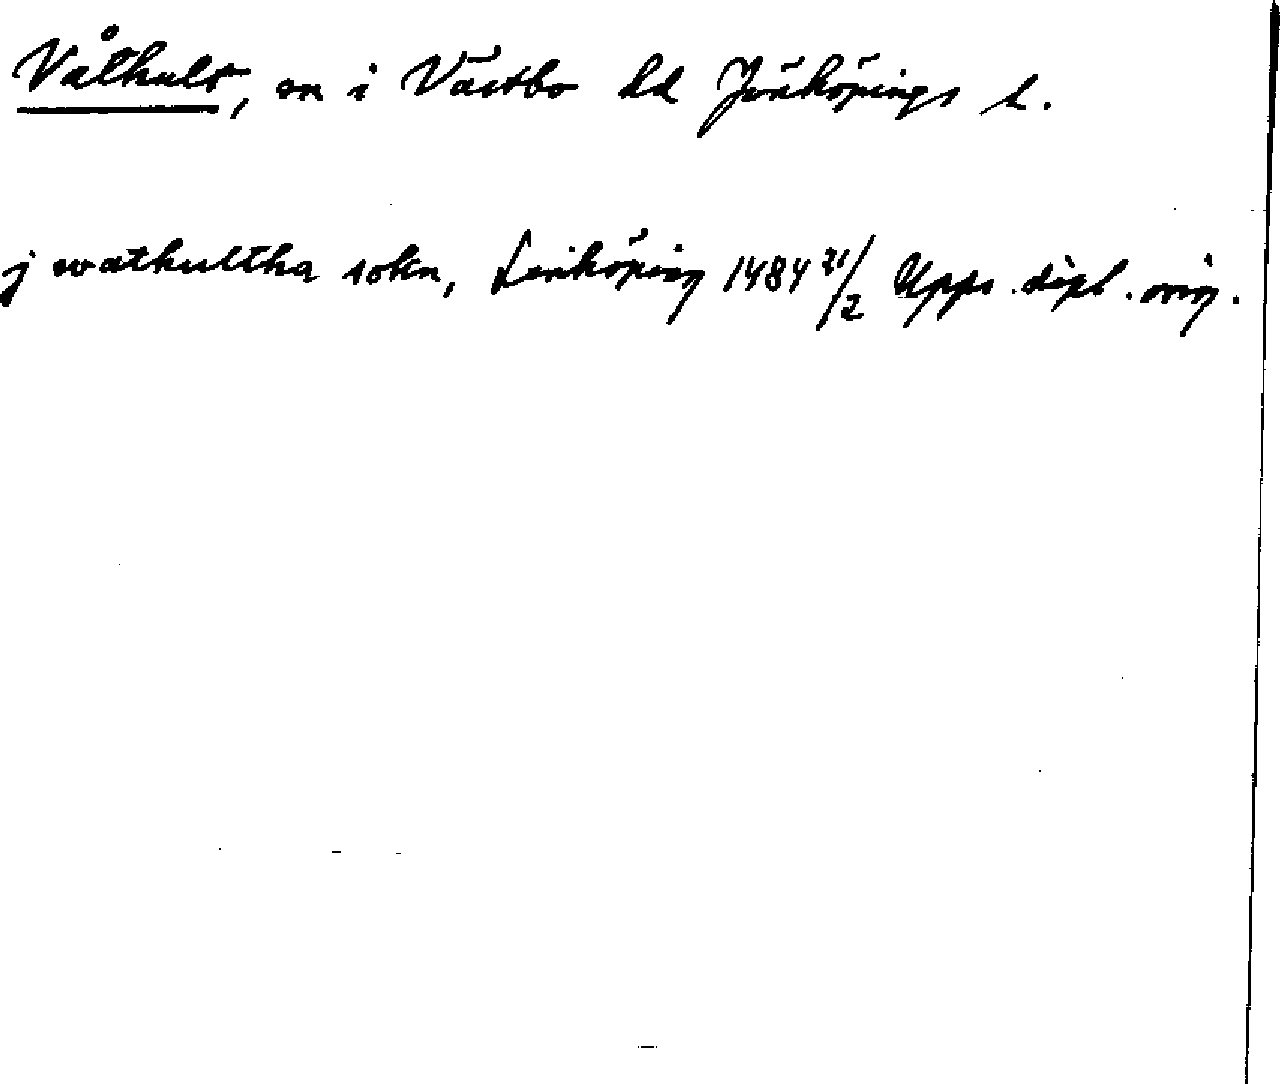 Våthult, sn i Västbo hd Jönköpings l.
j wathultha sokn, Linköping 1484 21/2 Upps. dipl. orig.